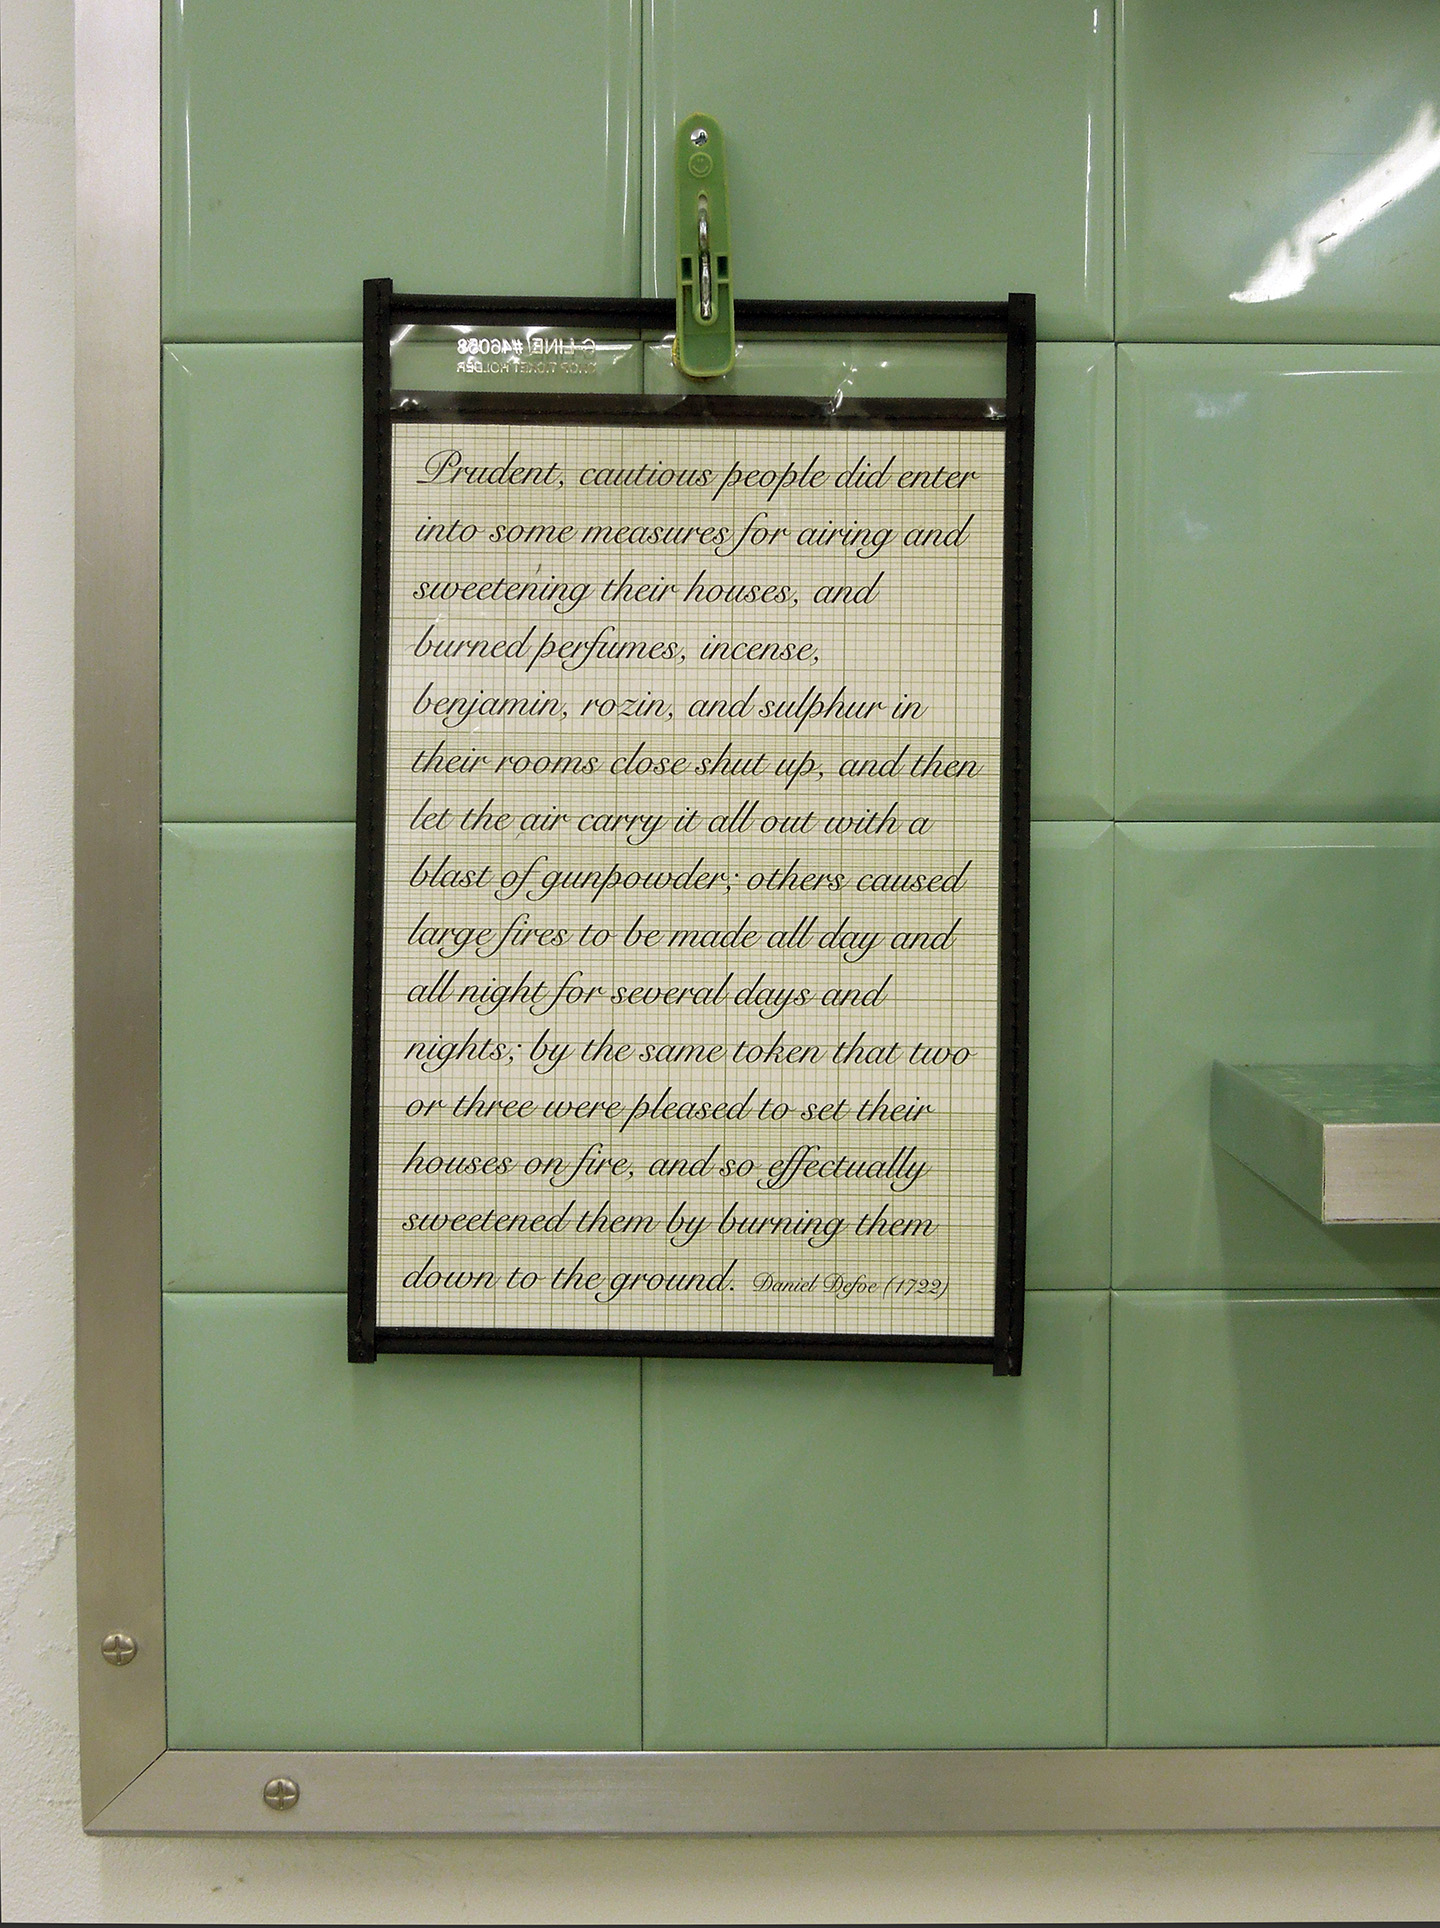 C-LINE #46058
SHOP TICKET HOLDER
Prudent, cautious people did enter
into some measures for airing and
sweetening their houses, and
burned perfumes, incense,
benjamin, rozin, and sulphur in
their rooms close shut up, and then
let the air carry it all out with a
blast of gunpowder; others caused
large fires to be made all day and
all night for several days and
nights; by the same token that two
or three were pleased to set their
houses on fire, and so effectually
sweetened them by burning them
down to the ground. Daniel Defoe (1722)